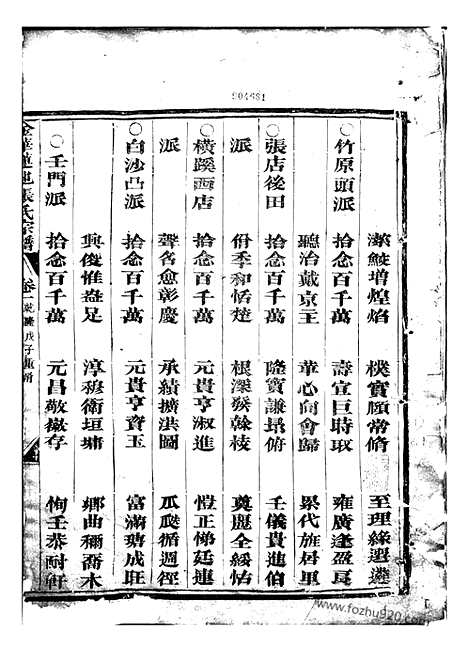 904681
潔鮫增煌焰 樸實願常脩 至理緣選
竹原頭派 拾念百千萬 壽宣巨時取 雍廣逢盈
聽治戴京王 華心向會歸 累代旌居
張店後田 拾念百千萬 隆寶謙昂俯 壬儀貴進伯
派 佾季和恬楚 根深發榦枝 奠麗全綏怙
橫蹊西店 拾念百千萬 元貴亨淑進 愷正悌廷連
派 聲名愈彰慶 承績擴洪圖 瓜瓞循週徑
白沙凸派 拾念百千萬 元貴亨齊玉 富滿瑭成旺
興俊惟益足 淳穆衛垣墉 鄉曲稱喬木
壬門派 拾念百千萬 元昌敬嶽存 恂壬恭耐軒
金華道連張氏宗譜 卷一 乾隆戊子重脩
www.fozhu920.com